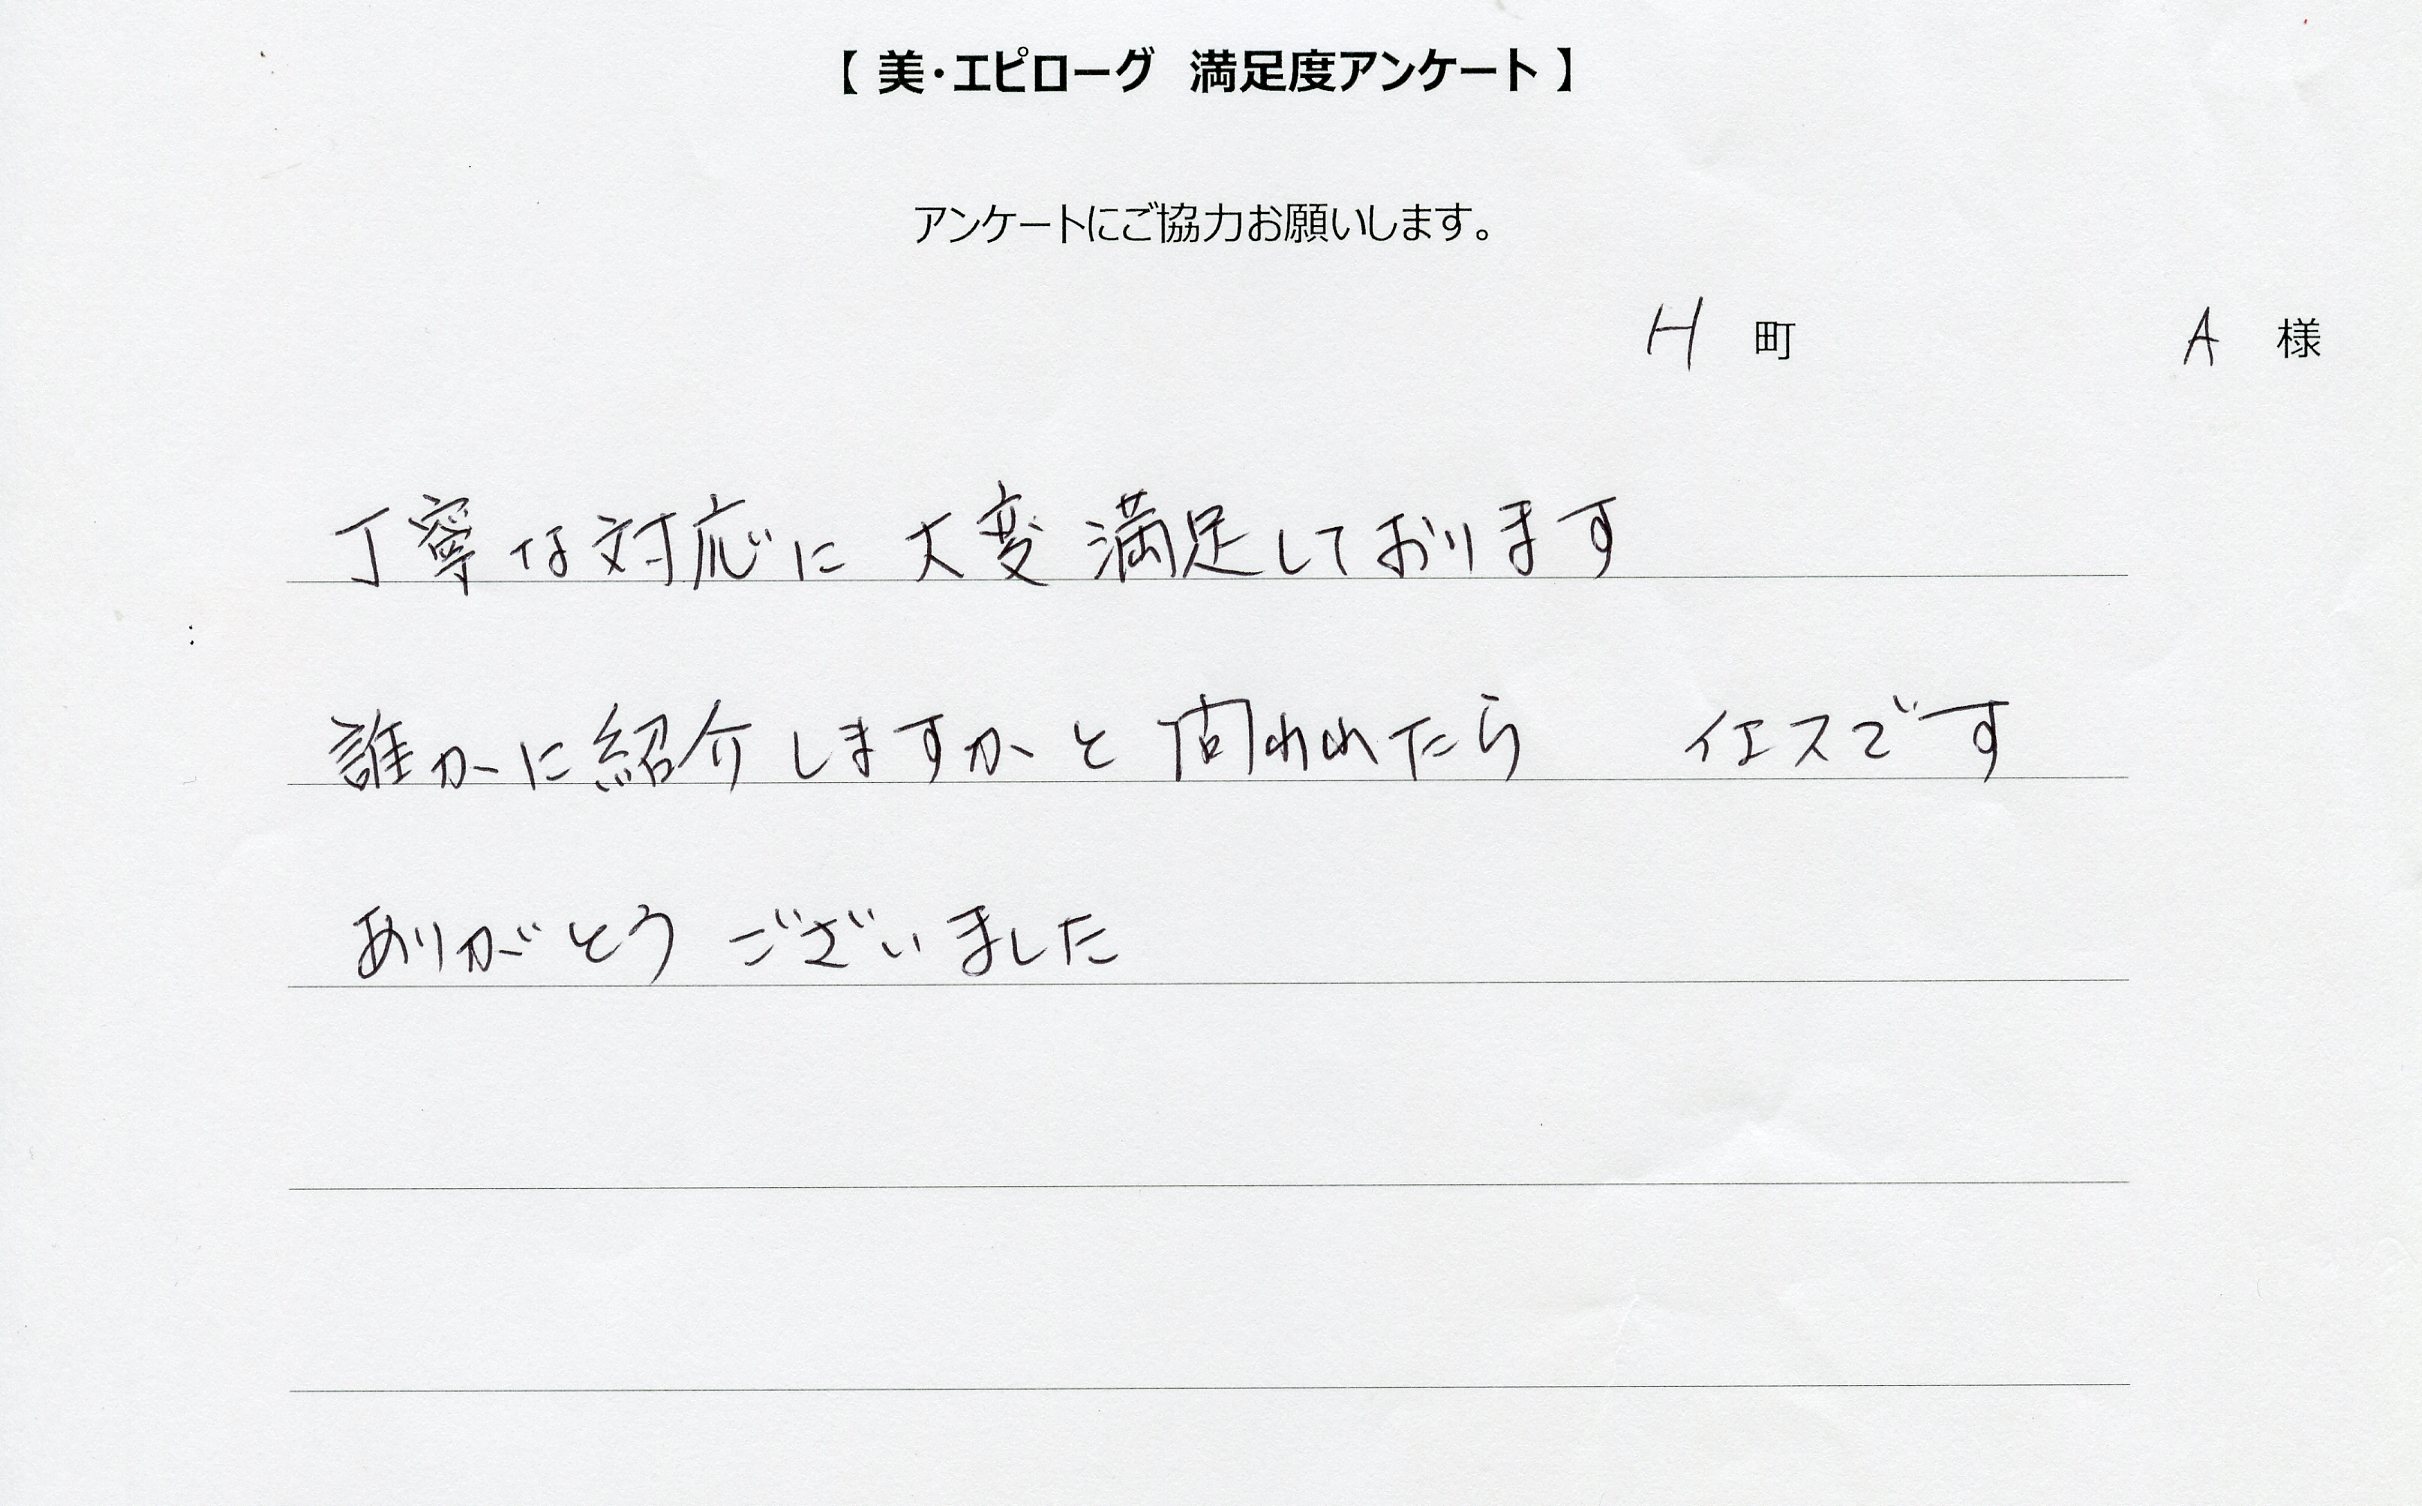 【 美・エピローグ 満足度アンケート 】
アンケートにご協力お願いします。
H 町 A 様
丁寧な対応に 大変 満足しております
誰かに紹介しますかと 問われたら イエスです
ありがとう ございました